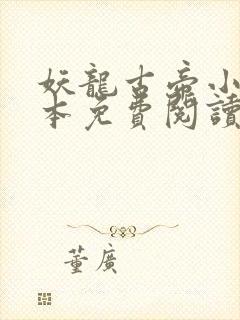 妖龍古帝小
本免費閱讀
董廣